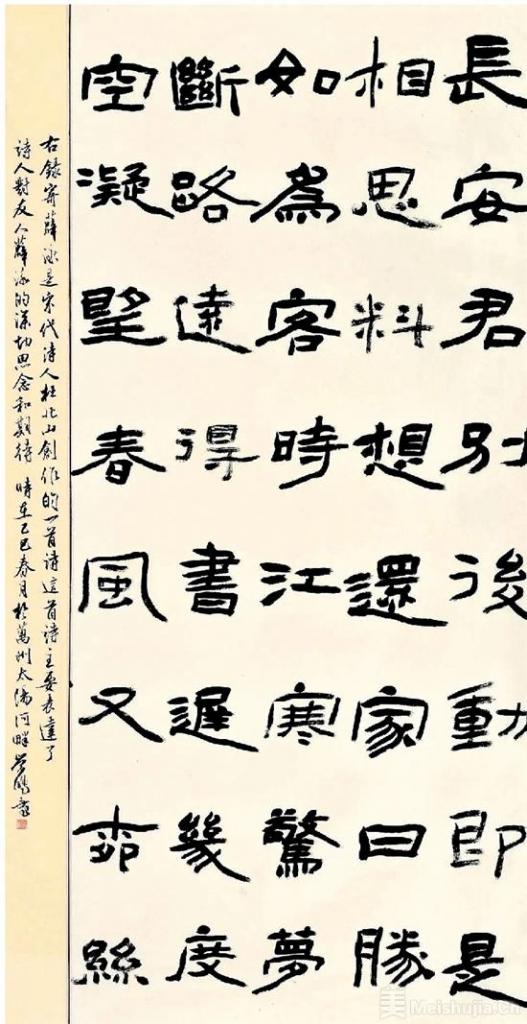 長安君別後動即是
相思料想還家曰勝
如爲客時江寒驚夢
斷路遠得書遲幾度
空凝望春風又桺絲
右錄寄薛泳是宋代诗人杜北山創作的一首诗這首诗主要表達了
诗人對友人薛泳的深切思念和期待 時在乙巳春月於萬州太陽河畔 書
美 Meishujia.Cn